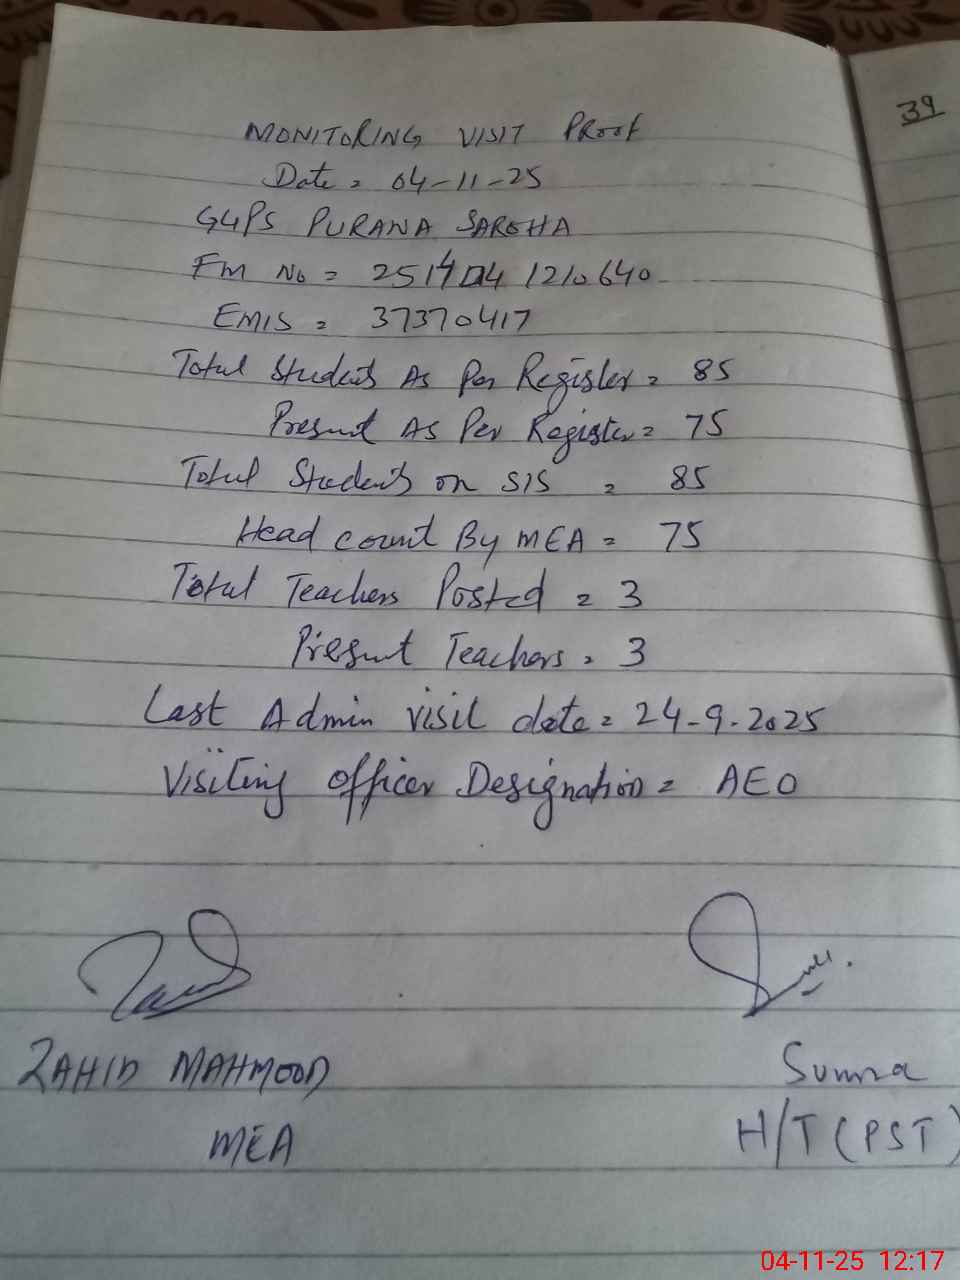 39
MONITORING VISIT PROOF
Date = 04-11-25
PURANA
Fm No = 1210640
EMIS = 37370417
Total Students As Per Register = 85
Present As Per Register = 75
Total Students on SIS = 85
Head count By MEA = 75
Total Teachers Posted = 3
Present Teachers = 3
Last Admin visit date = 24-9-2025
Visiting officer Designation = AEO
ZAHID MAHMOOD
MEA
H/T (PST)
04-11-25 12:17